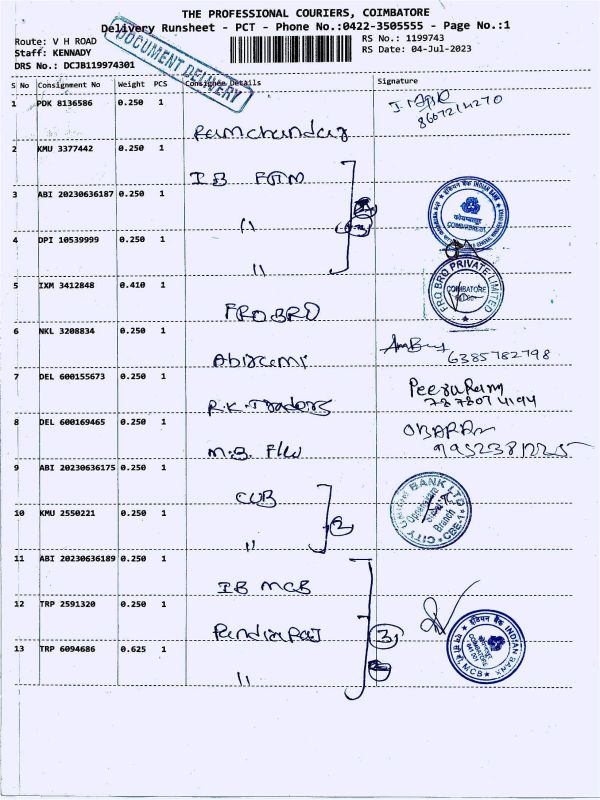 THE PROFESSIONAL COURIERS, COIMBATORE
Delivery Runsheet - PCT - Phone No.:0422-3505555 - Page No.:1
Route: V H ROAD
RS No.: 1199743
Staff: KENNADY
RS Date: 04-Jul-2023
DRS No.: DCJB119974301
DOCUMENT DELIVERY
S No Consignment No Weight PCS Consignee Details Signature
1 PDK 8136586 0.250 1 Ramchandar
8667214270
2 KMU 3377442 0.250 1 IB FGM
3 ABI 20230636187 0.250 1 "
इंडियन बैंक INDIAN BANK
कोयम्बत्तूर
COIMBATORE
4 DPI 10539999 0.250 1 "
5 IXM 3412848 0.410 1 FROBRO
FRO BRO PRIVATE LIMITED
COIMBATORE
6 NKL 3208834 0.250 1 Abirami
6385782798
7 DEL 600155673 0.250 1 R.K. Traders
PeeraRam
7878074194
8 DEL 600169465 0.250 1
9 ABI 20230636175 0.250 1 CUB
10 KMU 2550221 0.250 1 "
2
CITY UNION BANK LTD
Branch
CBE-1
11 ABI 20230636189 0.250 1 IB MCB
12 TRP 2591320 0.250 1
3
13 TRP 6094686 0.625 1 "
इंडियन बैंक INDIAN BANK
COIMBATORE
641 001
MCB